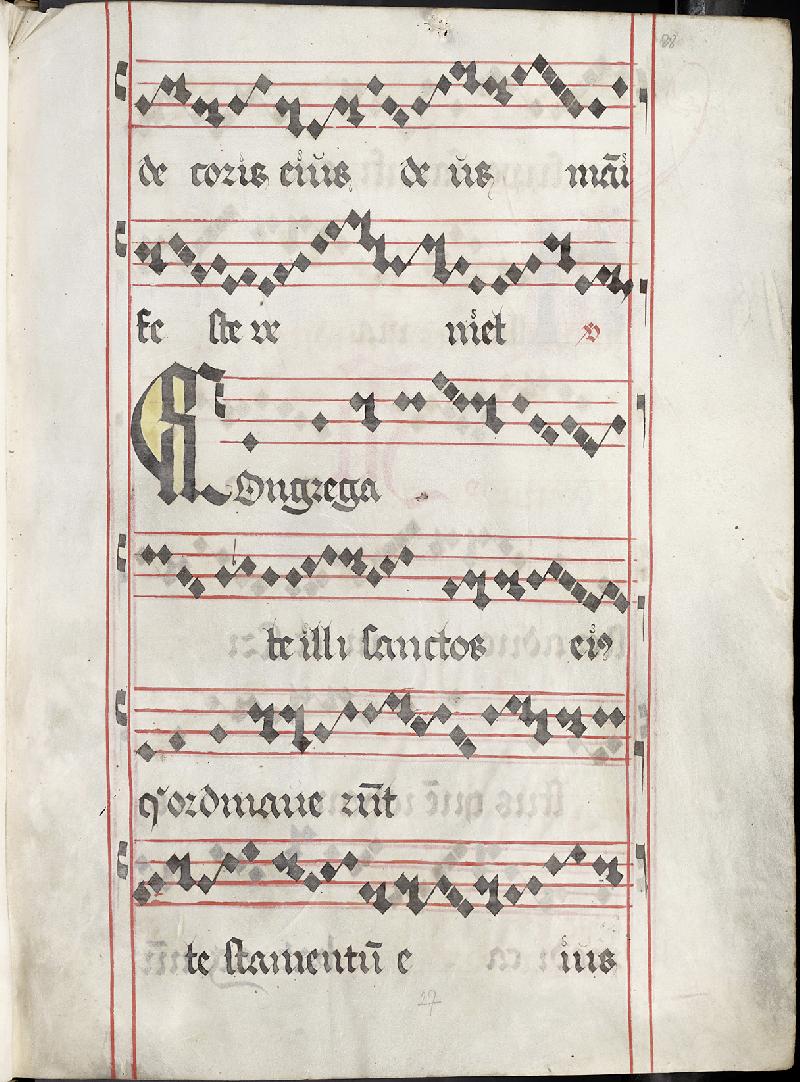 88
de coris eius de us mãi
fe ste ve niet ℣
COngrega
te illi sanctos ei9
q ordinaue rũt
te stamentũ e ius
27